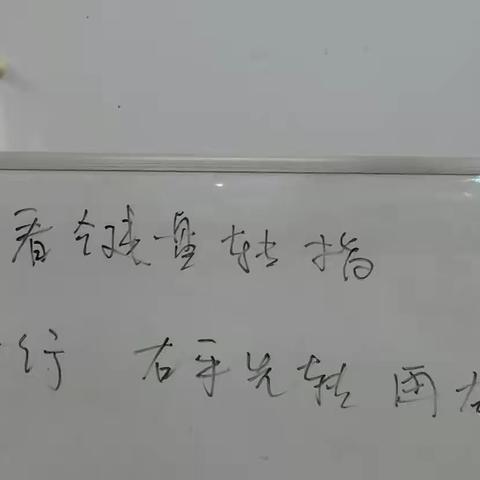 看键盘转指
行 右手先转 两右